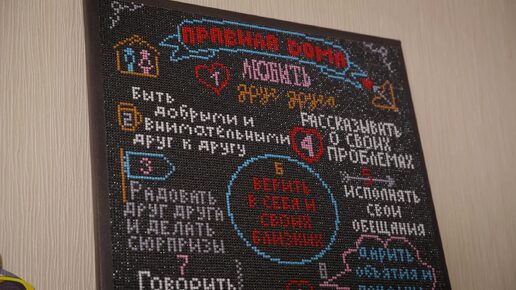 ПРАВИЛА ДОМА
1
ЛЮБИТЬ
друг друга
2
БЫТЬ
ДОБРЫМИ И
ВНИМАТЕЛЬНЫМИ
ДРУГ К ДРУГУ
4
РАССКАЗЫВАТЬ
О СВОИХ
ПРОБЛЕМАХ
3
РАДОВАТЬ
ДРУГ ДРУГА
И ДЕЛАТЬ
СЮРПРИЗЫ
6
ВЕРИТЬ
В СЕБЯ И
СВОИХ
БЛИЗКИХ
5
ИСПОЛНЯТЬ
СВОИ
ОБЕЩАНИЯ
7
ГОВОРИТЬ
8
ДАРИТЬ
ОБЪЯТИЯ И